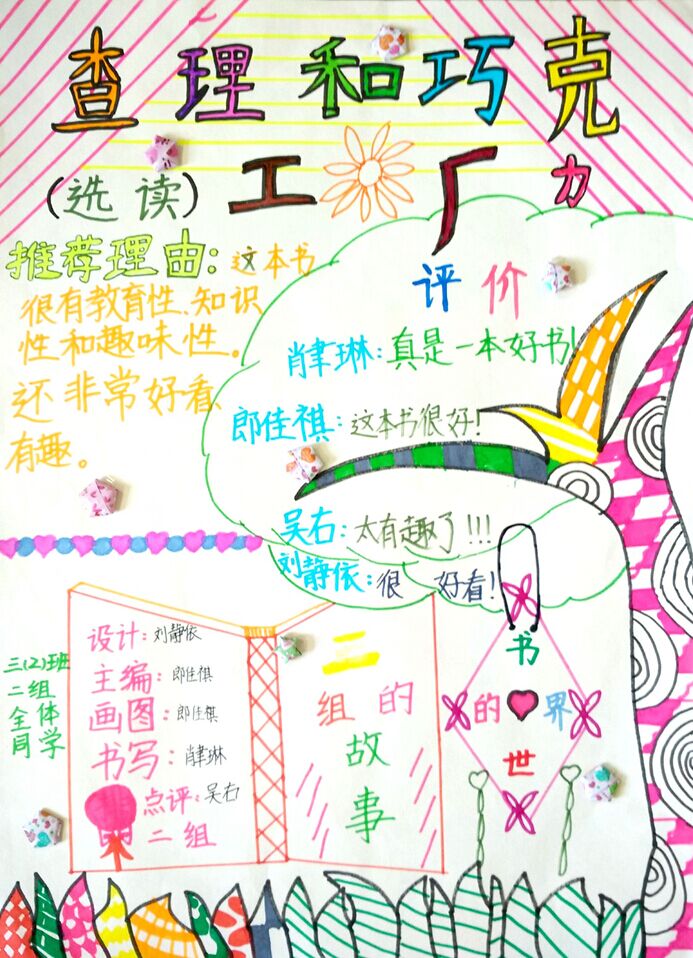 查理和巧克
力
(选读)工厂
推荐理由:这本书
很有教育性、知识
性和趣味性。
还非常好看、
有趣。
评价
肖聿琳:真是一本好书!
郎佳祺:这本书很好!
吴右:太有趣了!!!
刘静依:很 好看!
三(2)班
二组
全体
同学
设计:刘静依
主编:郎佳祺
画图:郎佳祺
书写:肖聿琳
点评:吴右
二组
二
组的
故
事
书
的 界
世